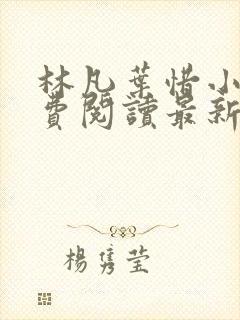 林凡葉惜小
費閱讀最新
楊雋瑩